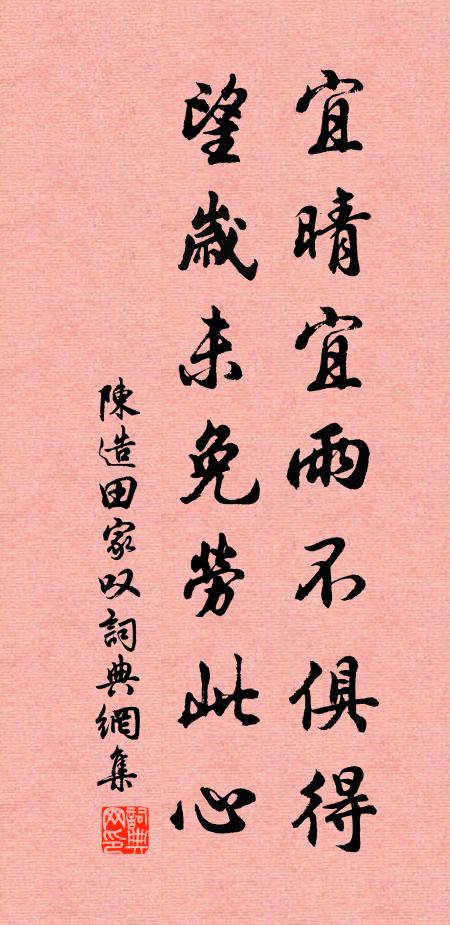 宜晴宜雨不俱得
望歳未免勞此心
陳造田家叹詞典網集
詞典网印